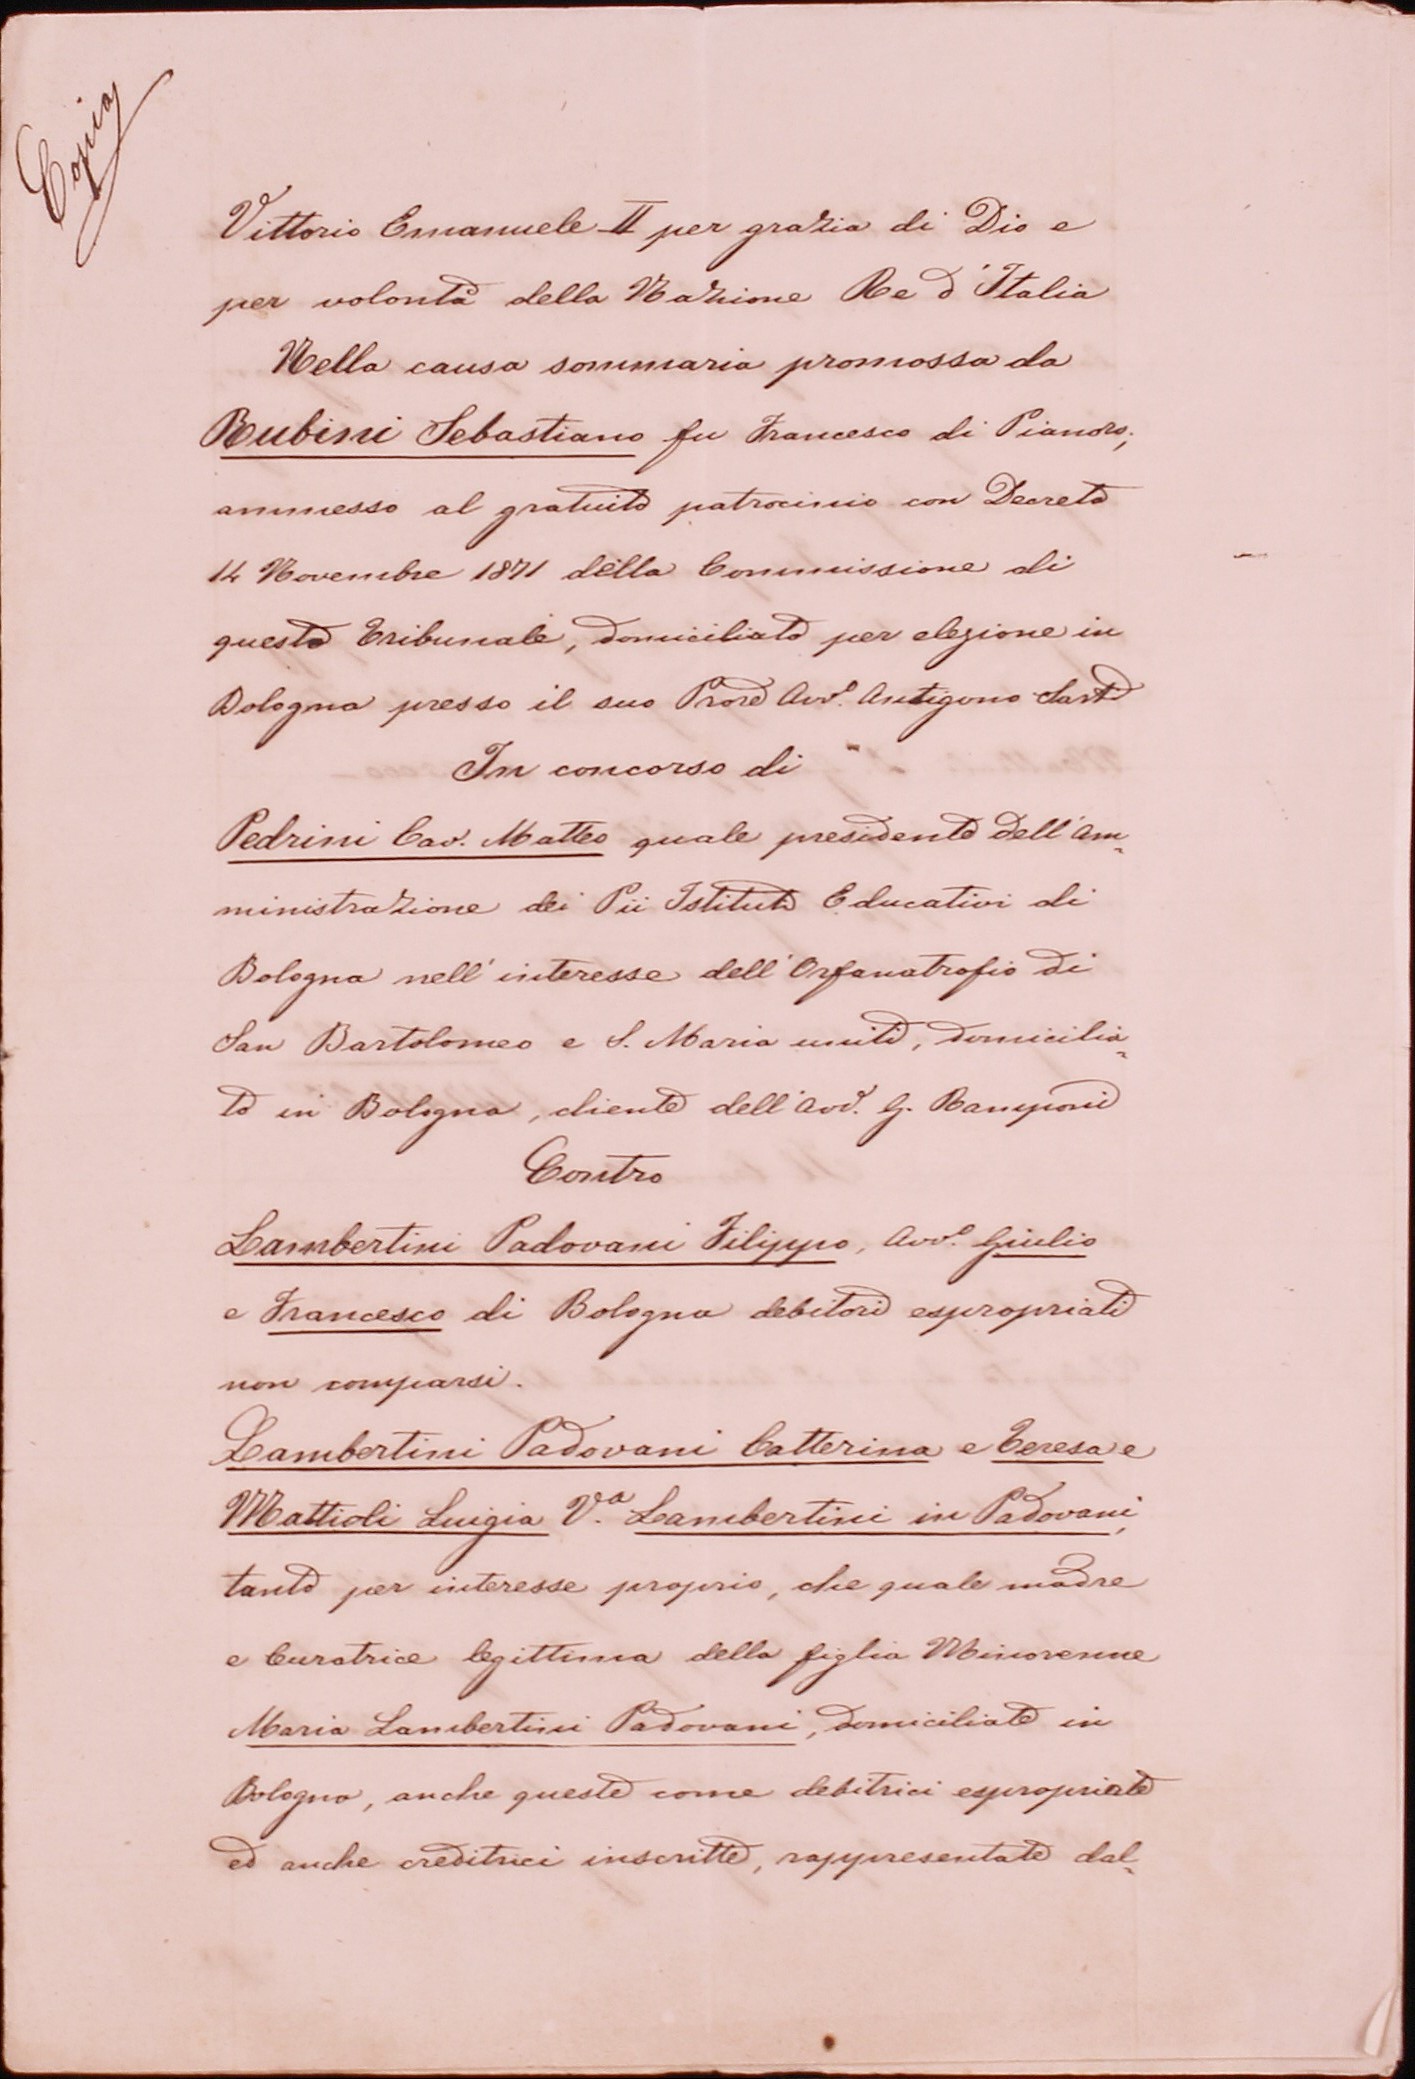 Copia
Vittorio Emanuele II per grazia di Dio e
per volontà della Nazione Re d'Italia
Nella causa sommaria promossa da
Rubini Sebastiano fu Francesco di Pianoro,
ammesso al gratuito patrocinio con Decreto
14 Novembre 1871 della Commissione di
questo Tribunale, domiciliato per elezione in
Bologna presso il suo Prore Avv.o Antigono Sarti
In concorso di
Pedrini Cav. Matteo quale presidente dell'Am-
ministrazione dei Pii Istituti Educativi di
Bologna nell'interesse dell'Orfanatrofio di
San Bartolomeo e S. Maria uniti, domicilia-
to in Bologna, cliente dell'Avv. G. Ramponi
Contro
Lambertini Padovani Filippo, Avv.o Giulio
e Francesco di Bologna debitori espropriati
non comparsi.
Lambertini Padovani Catterina e Teresa e
Mattioli Luigia V.a Lambertini in Padovani,
tanto per interesse proprio, che quale madre
e Curatrice legittima della figlia Minorenne
Maria Lambertini Padovani, domiciliate in
Bologna, anche queste come debitrici espropriate
ed anche creditrici inscritte, rappresentate dal-